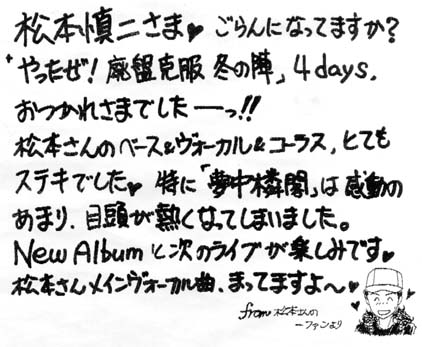 松本慎二さま♥ ごらんになってますか?
“やったぜ! 廃盤克服 冬の陣」4days.
おつかれさまでしたーっ!!
松本さんのベース&ヴォーカル&コーラス,とても
ステキでした♥ 特に「夢中楼閣」は 感動の
あまり、目頭が熱くなってしまいました。
New Albumと次のライブが楽しみです♥
松本さんメインヴォーカル曲、まってますよ〜♥
from 松本さんの
一ファンより